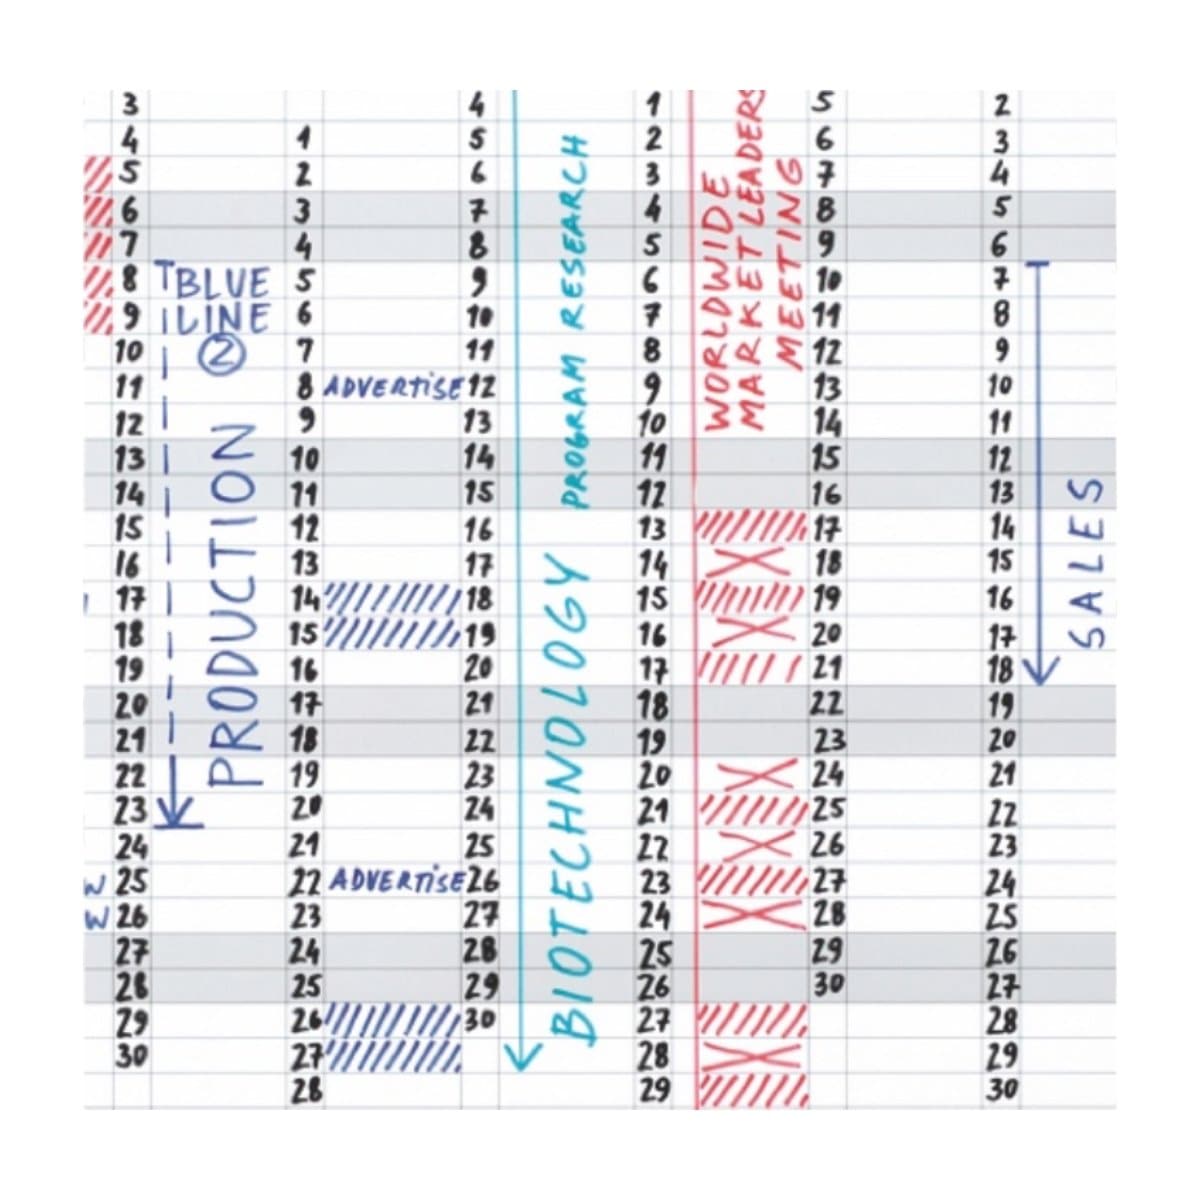 3 4 1 5 2
4 1 5 2 6 3
5 2 6 3 7 4
6 3 7 4 8 5
7 4 8 5 9 6
8 BLUE 5 9 6 10 7
9 LINE 6 10 7 11 8
10 2 7 11 8 12 9
11 8 ADVERTiSE 12 9 13 10
12 9 13 10 14 11
13 10 14 11 15 12
14 11 15 12 16 13
15 12 16 13 17 14
16 13 17 14 18 15
17 14 18 15 19 16
18 15 19 16 20 17
19 16 20 17 21 18
20 17 21 18 22 19
21 18 22 19 23 20
22 19 23 20 24 21
23 20 24 21 25 22
24 21 25 22 26 23
W 25 22 ADVERTiSE 26 23 27 24
W 26 23 27 24 28 25
27 24 28 25 29 26
28 25 29 26 30 27
29 26 30 27 28
30 27 28 29
28 29 30
PRODUCTION
BIOTECHNOLOGY PROGRAM RESEARCH
WORLDWIDE
MARKET LEADERS
MEETING
SALES